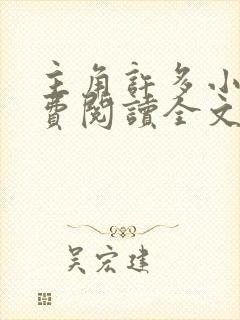 主角許多小
費閱讀全文
吳宏建